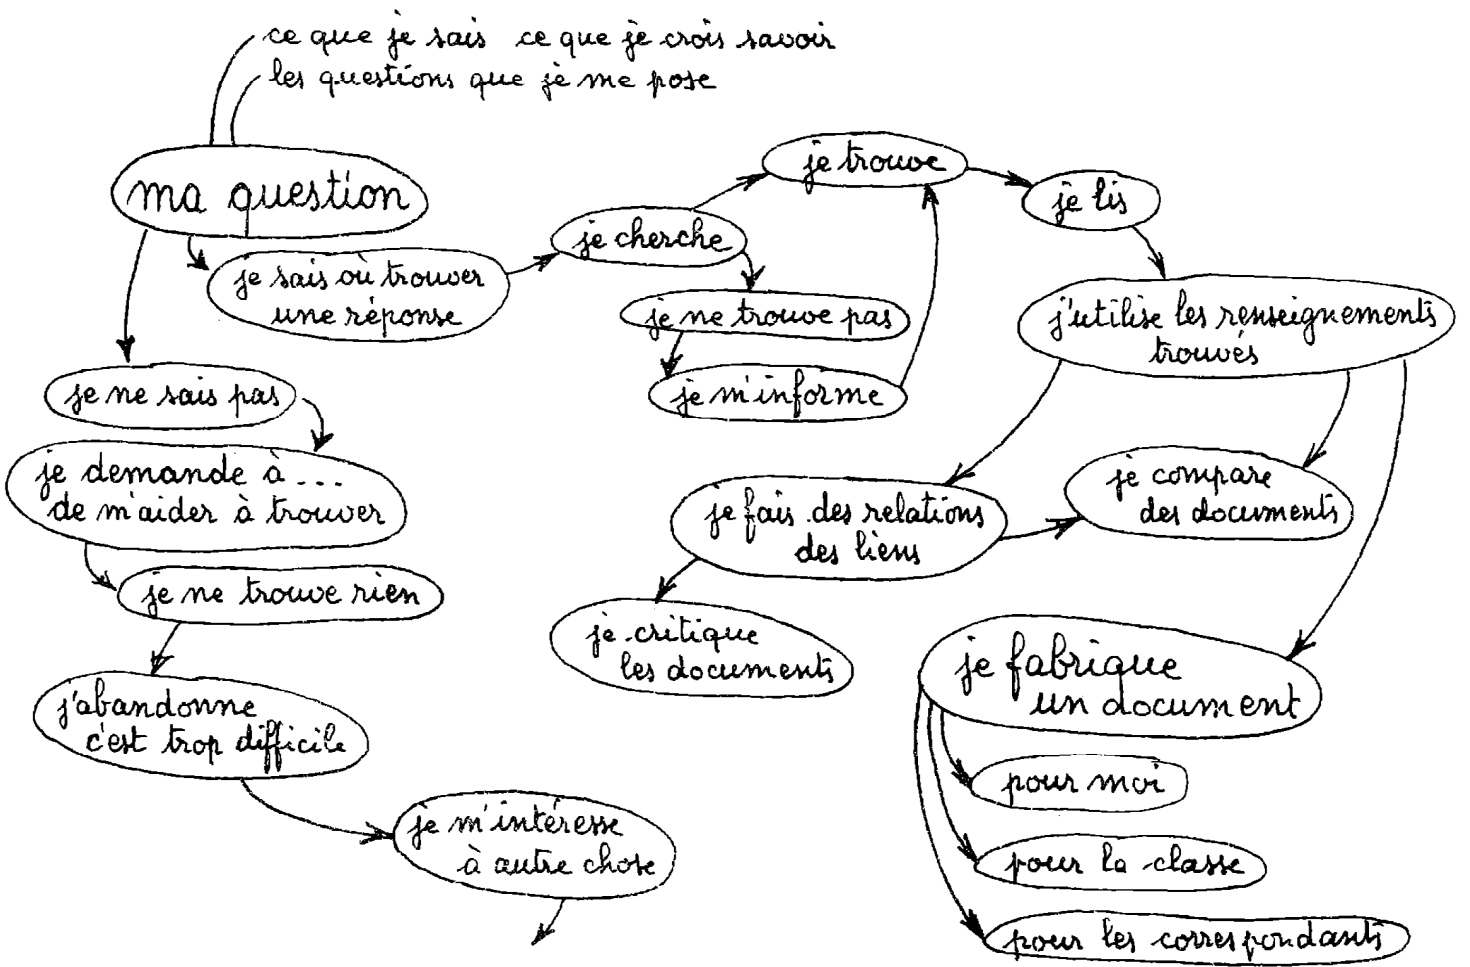 ce que je sais ce que je crois savoir
les questions que je me pose
ma question
je sais où trouver
une réponse
je cherche
je trouve
je lis
je ne trouve pas
je m'informe
j'utilise les renseignements
trouvés
je ne sais pas
je demande à ...
de m'aider à trouver
je ne trouve rien
j'abandonne
c'est trop difficile
je m'intéresse
à autre chose
je fais des relations
des liens
je compare
des documents
je critique
les documents
je fabrique
un document
pour moi
pour la classe
pour les correspondants